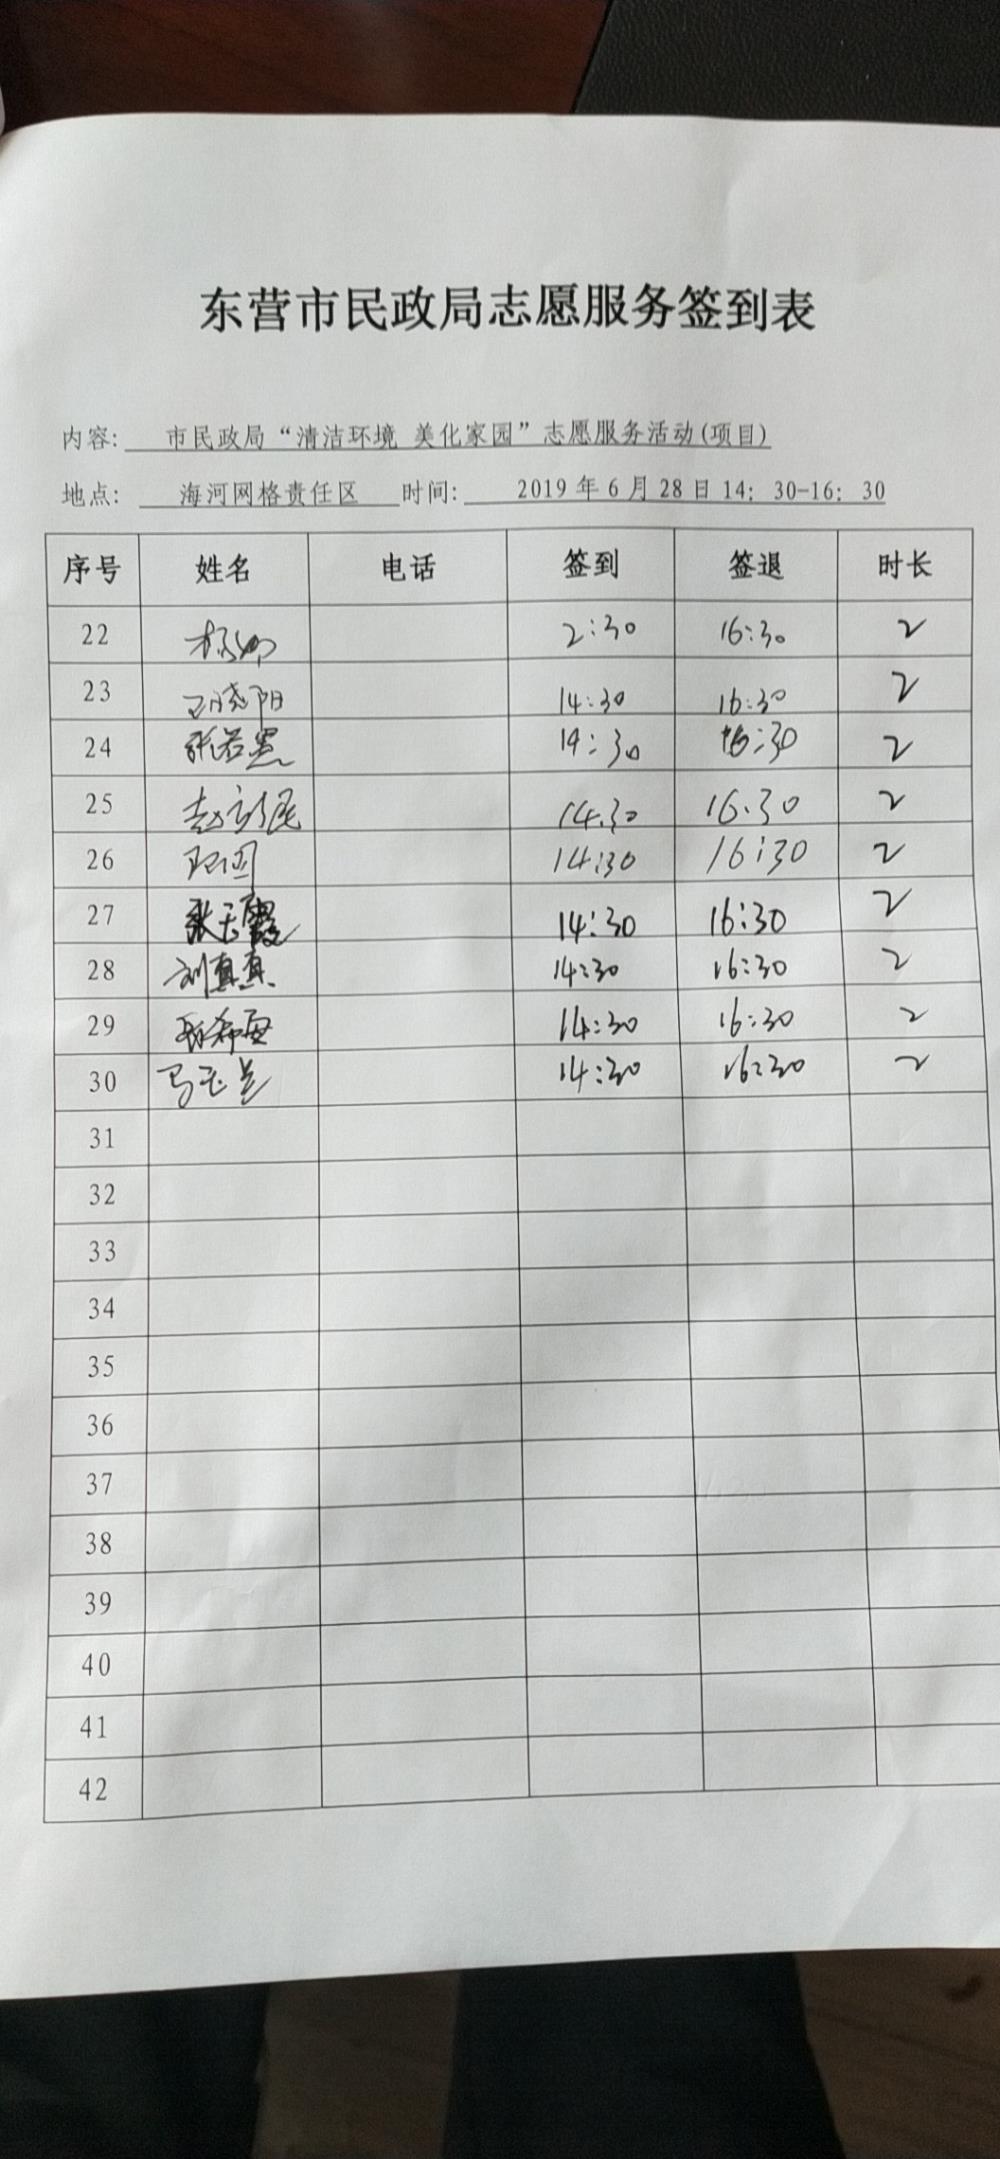 东营市民政局志愿服务签到表
内容: 市民政局“清洁环境 美化家园”志愿服务活动(项目)
地点: 海河网格责任区 时间: 2019年6月28日14: 30-16: 30
序号 姓名 电话 签到 签退 时长
22 2:30 16:30 2
23 王晓阳 14:30 16:30 2
24 14:30 16:30 2
25 赵彭民 14.30 16.30 2
26 14:30 16:30 2
27 张玉霞 14:30 16:30 2
28 刘真真 14:30 16:30 2
29 14:30 16:30 2
30 马玉兰 14:30 16:30 2
31
32
33
34
35
36
37
38
39
40
41
42